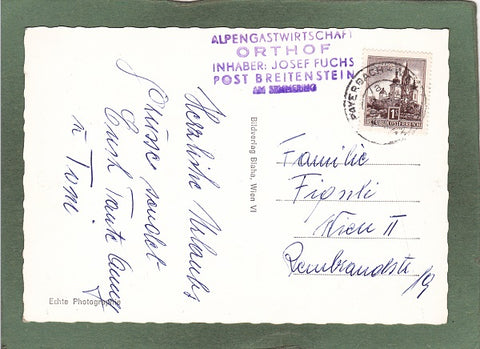 ALPENGASTWIRTSCHAFT
ORTHOF
INHABER: JOSEF FUCHS
POST BREITENSTEIN
AM SEMMERING
PAYERBACH
1S
REPUBLIK ÖSTERREICH
Herzliche Urlaubs
Grüsse sendet
Euch Tante Anny
u Toni
Echte Photographie
Bildverlag Blaha, Wien VI
Familie
Wien II
Rembrandtstr
19